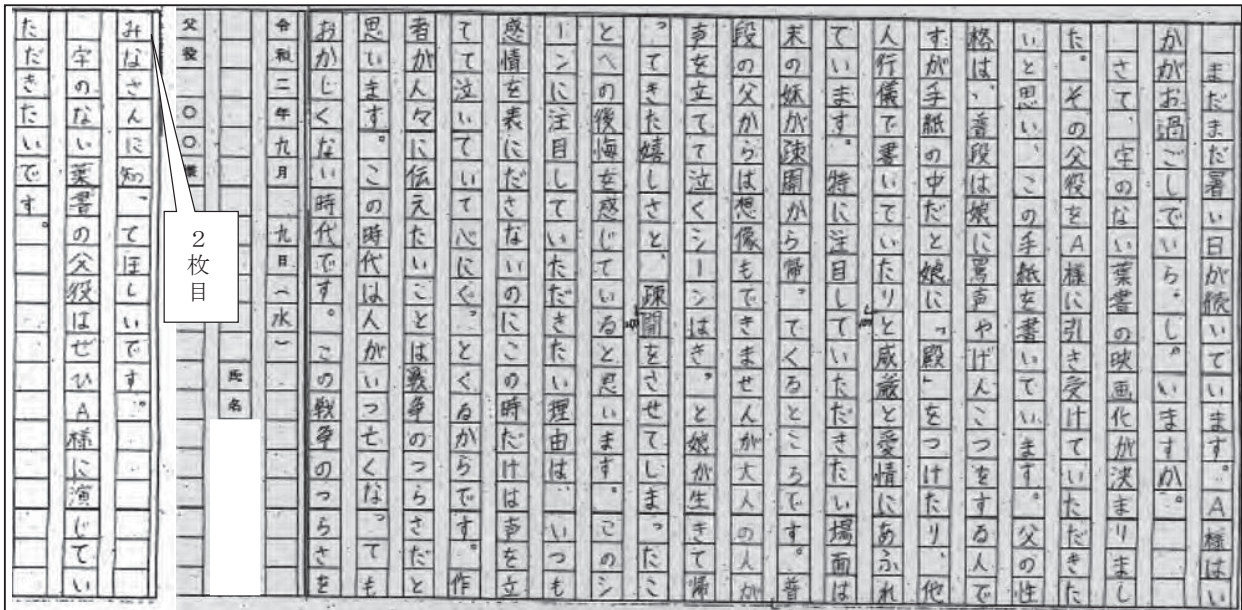 まだまだ暑い日が続いています。A様はい
かがお過ごしでいらっしゃいますか。
さて、字のない葉書の映画化が決まりまし
た。その父役をA様に引き受けていただきた
いと思い、この手紙を書いています。父の性
格は、普段は娘に罵声やげんこつをする人で
すが手紙の中だと娘に「殿」をつけたり、他
人行儀で書いていたりと威厳と愛情にあふれ
ています。特に注目していただきたい場面は
末の妹が疎開から帰ってくるところです。普
段の父からは想像もできませんが大人の人が
声を立てて泣くシーンはきっと娘が生きて帰
ってきた嬉しさと、疎開をさせてしまったこ
とへの後悔を感じていると思います。このシ
ーンに注目していただきたい理由は、いつも
感情を表にださないのにこの時だけは声を立
てて泣いていて心にぐっとくるからです。作
者が人々に伝えたいことは戦争のつらさだと
思います。この時代は人がいつ亡くなっても
おかしくない時代です。この戦争のつらさを
令和二年九月九日(水)
氏名
父役 〇〇様
2枚目
みなさんに知ってほしいです。
字のない葉書の父役はぜひA様に演じてい
ただきたいです。